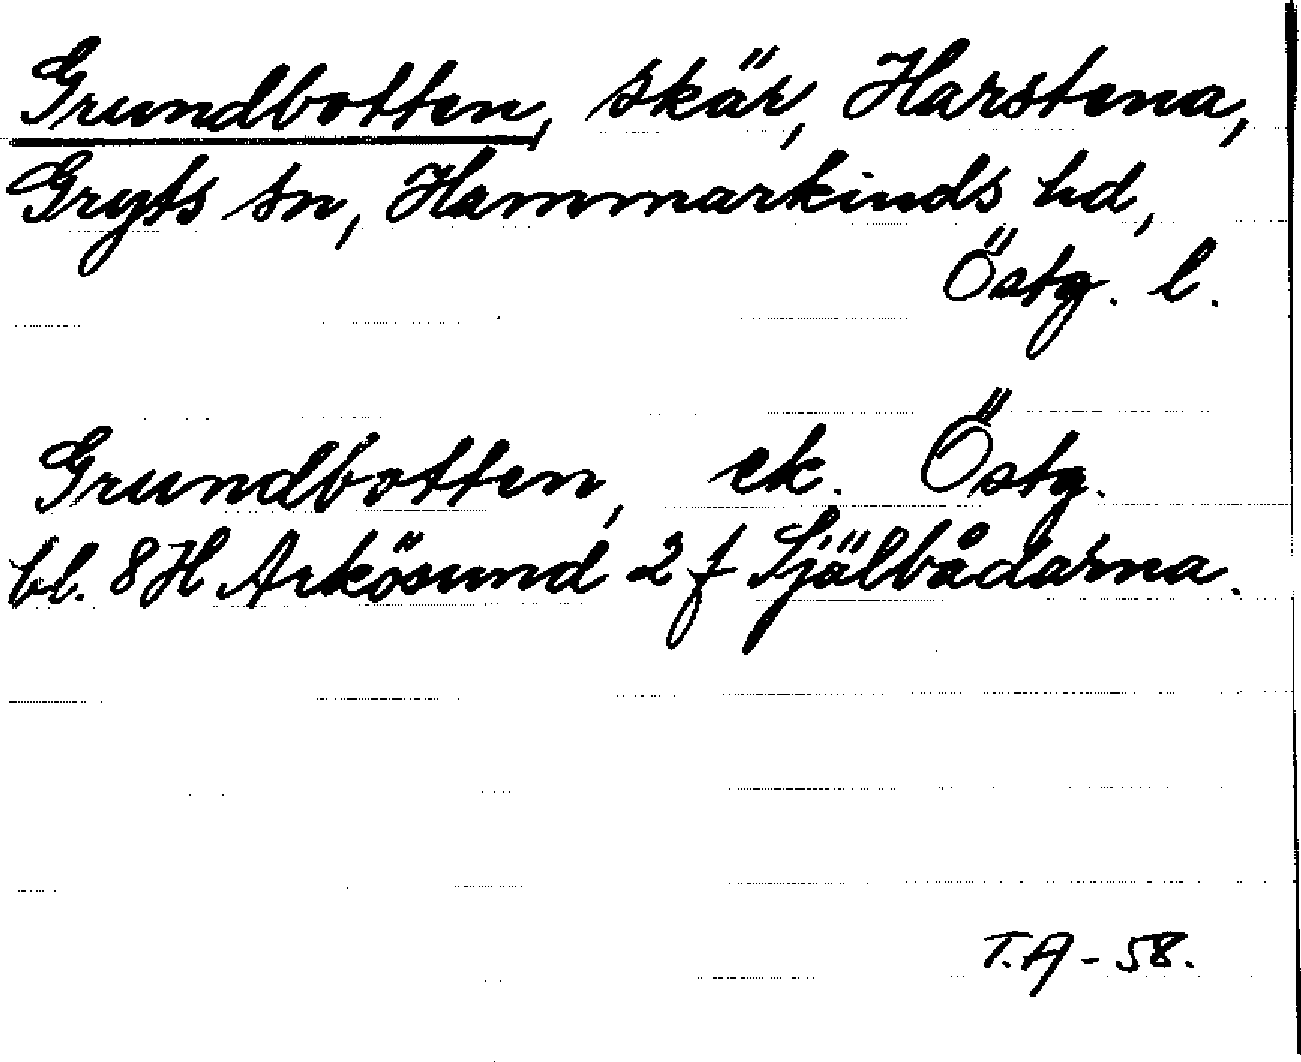 Grundbotten, skär, Harstena,
Gryts sn, Hammarkinds hd,
Östg. l.
Grundbotten, ek. Östg.
bl. 8H Arkösund 2 f Själbådarna.
T.A - 58.